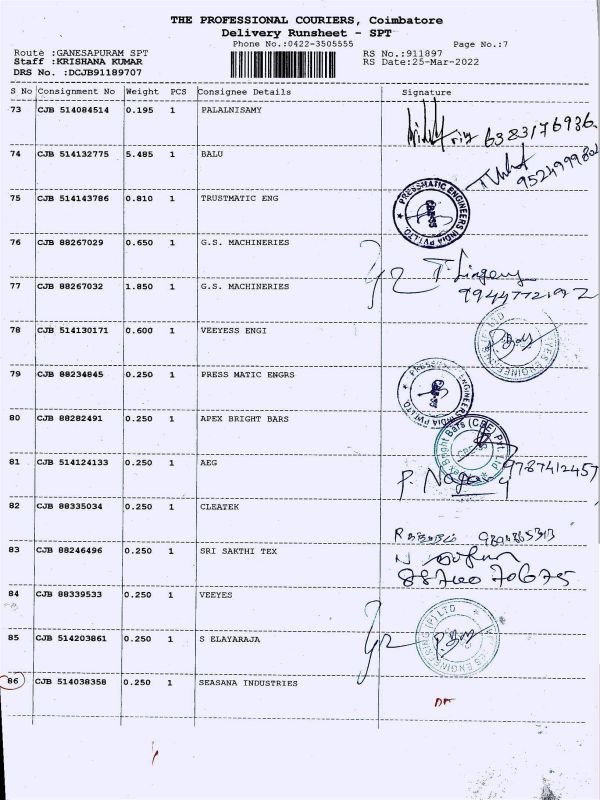 THE PROFESSIONAL COURIERS, Coimbatore
Delivery Runsheet - SPT
Phone No.:0422-3505555 Page No.:7
Route :GANESAPURAM SPT RS No.:911897
Staff :KRISHANA KUMAR RS Date:25-Mar-2022
DRS No. :DCJB91189707
S No Consignment No Weight PCS Consignee Details Signature
73 CJB 514084514 0.195 1 PALALNISAMY
6383176936
74 CJB 514132775 5.485 1 BALU
75 CJB 514143786 0.810 1 TRUSTMATIC ENG
PRESSMATIC ENGINEERS INDIA PVT LTD
76 CJB 88267029 0.650 1 G.S. MACHINERIES
77 CJB 88267032 1.850 1 G.S. MACHINERIES
78 CJB 514130171 0.600 1 VEEYESS ENGI
79 CJB 88234845 0.250 1 PRESS MATIC ENGRS
80 CJB 88282491 0.250 1 APEX BRIGHT BARS
Apex Bright Bars (CBE) Pvt. Ltd
81 CJB 514124133 0.250 1 AEG
9787412457
82 CJB 88335034 0.250 1 CLEATEK
83 CJB 88246496 0.250 1 SRI SAKTHI TEX
84 CJB 88339533 0.250 1 VEEYES
85 CJB 514203861 0.250 1 S ELAYARAJA
86 CJB 514038358 0.250 1 SEASANA INDUSTRIES